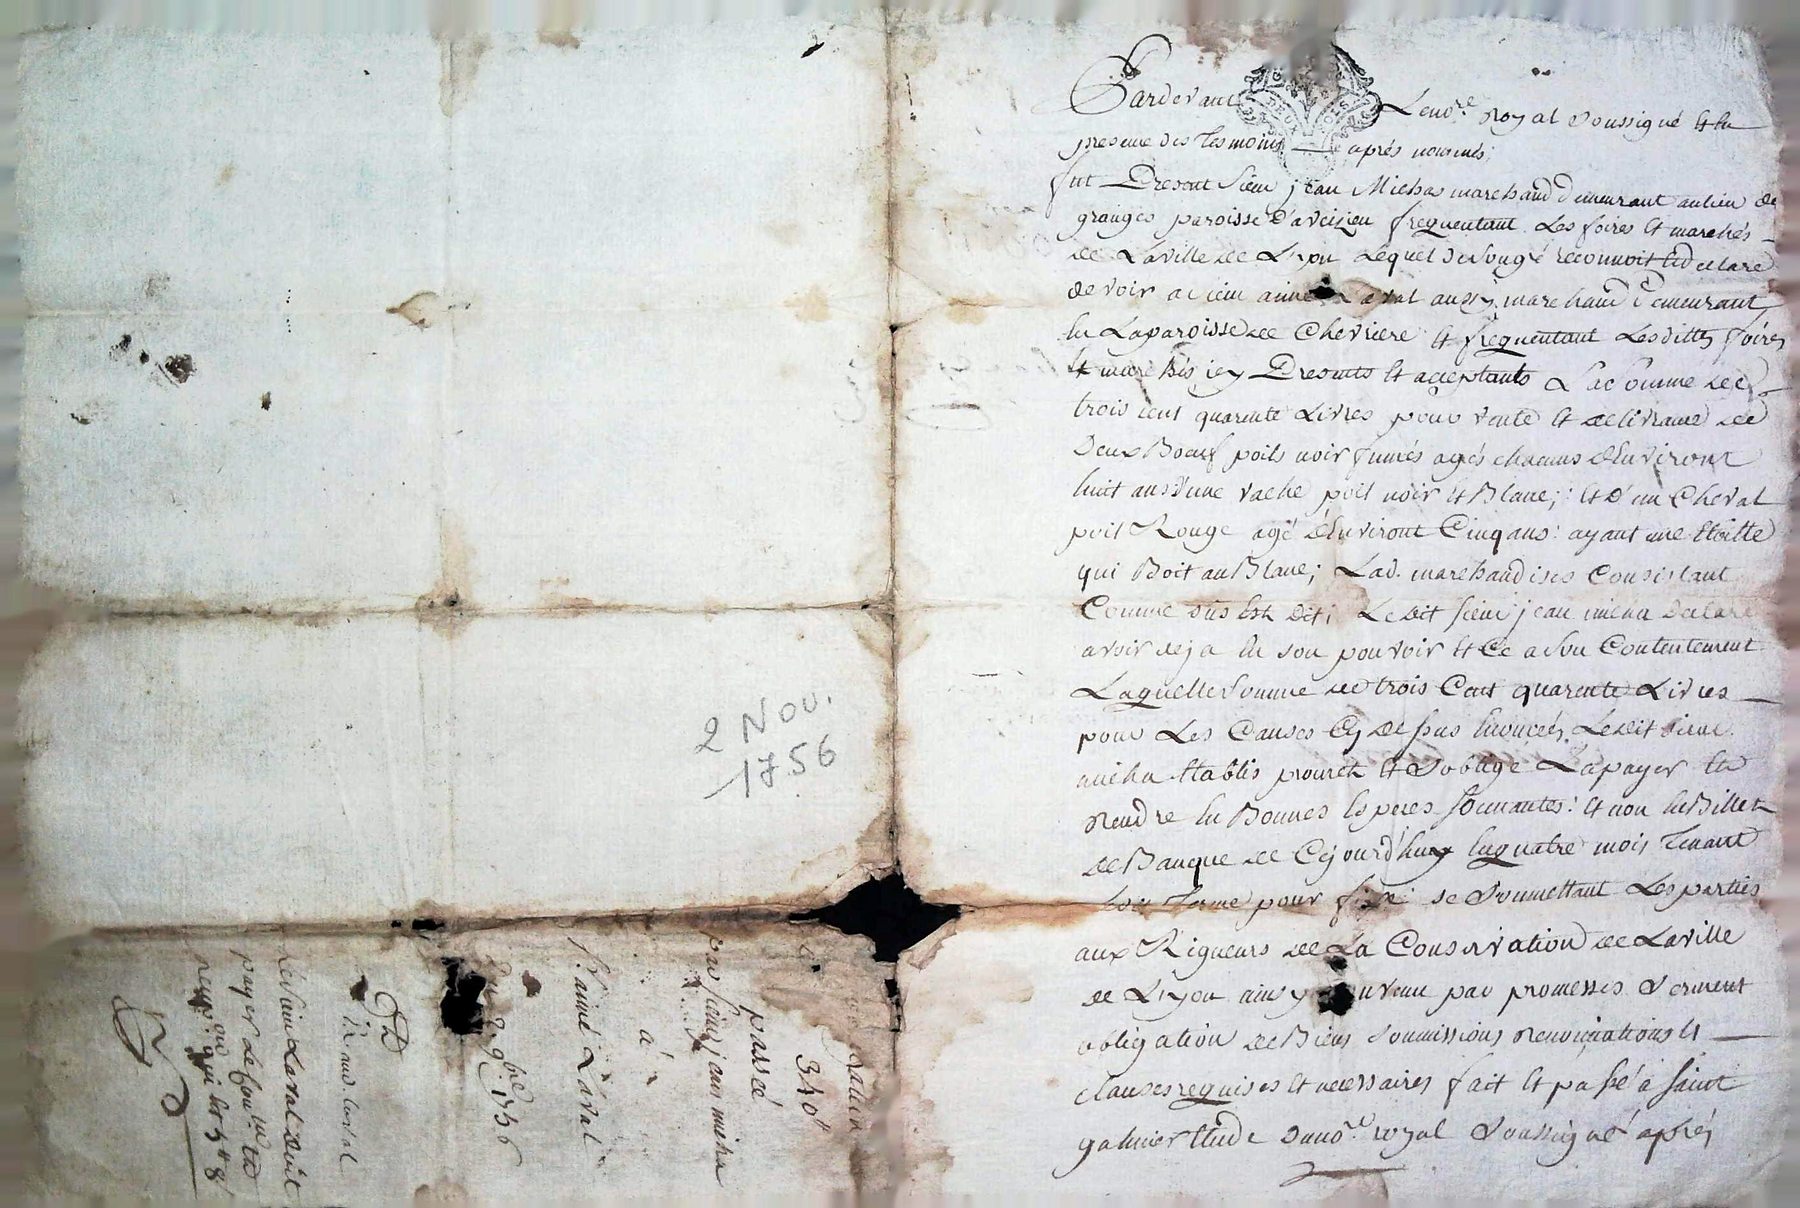 Pardevant Le no.re Royal Soussigné Et En
presence des Tesmoins aprés nommés;
fut Present sieur jean Michas marchand Demeurant au lieu de
granges paroisse D'aveizieu frequentant Les foires Et marchés
de La ville de Lyon Lequel de son gré reconnoit Et declare
devoir a sieur aimé Laval aussy marchand Demeurant
En La paroisse de Chevriere Et frequentant Lesdittes foires
Et marchés icy Presents Et aceptants La Somme de
trois cent quarente Livres pour vente Et delivrance de
Deux Boeuf poils noir fumés agés chacuns D'Environt
huit ans d'une vache poil noir Et Blanc; Et D'un Cheval
poil Rouge agé d'Environt Cinq ans: ayant une Etoille
qui Boit au Blanc; Lad. marchandises Consistant
Comme dus Est Dit; Ledit sieur jean micha Declare
avoir deja En son pouvoir Et Ce a son Contentement
Laquelle Somme de trois Cent quarente Livres
pour Les Causes Cy dessus Enoncés Ledit sieur
micha Etablis promet Et S'oblige La payer Et
Rendre En Bonnes Especes Sonnantes: Et non En Billet
de Banque de Cejourd'huy En quatre mois Tenant
Led. Terme pour fixe; se Soumettant Les parties
aux Rigueurs de La Conservation de La ville
de Lyon ainsy Convenu par promesses Serment
obligation de Biens Soumissions Renonciations Et
clauses requises Et necessaires fait Et passé a Saint
galmier Etude du no.re royal Soussigné aprés
2 Nov.
1756
340#
passé
par sieur jean micha
à
sr. aimé Laval
Du 2. 9bre 1756
Le sieur Laval Doit
payer Le Con.lle Et